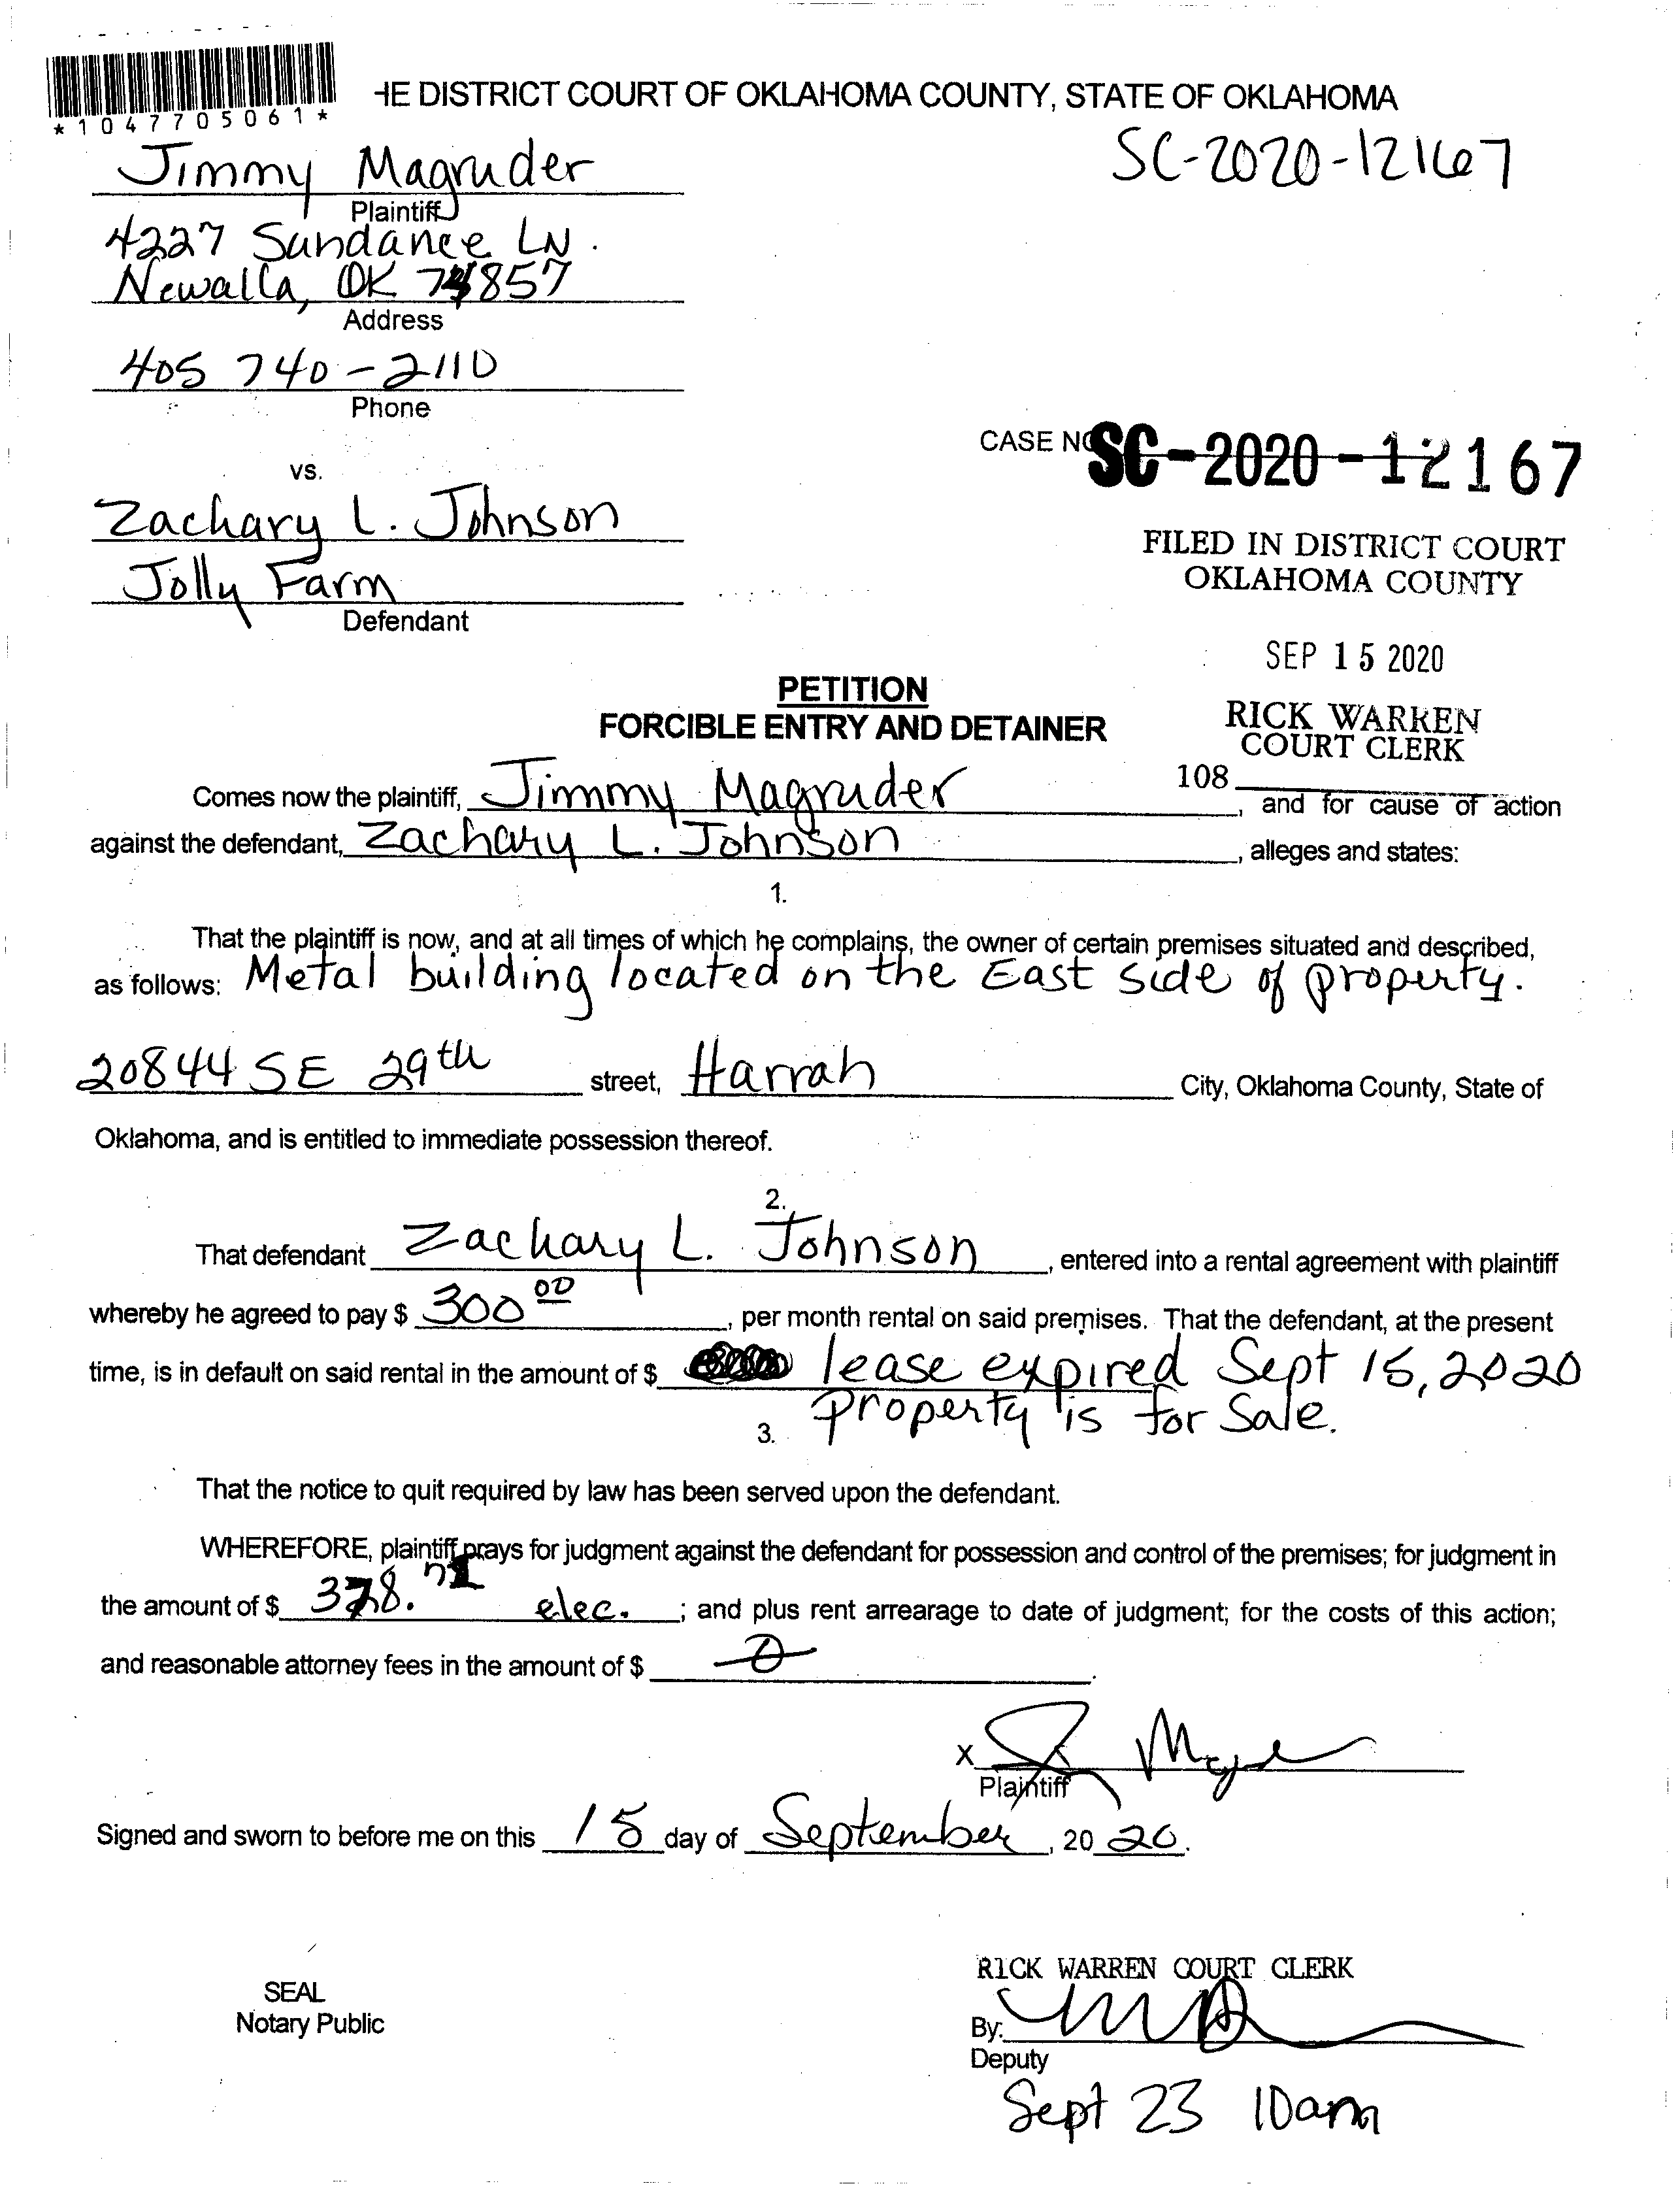 *1047705061*
HE DISTRICT COURT OF OKLAHOMA COUNTY, STATE OF OKLAHOMA
SC-2020-12167
Jimmy Magruder
Plaintiff
4227 Sundance LN.
Newalla, OK 74857
Address
405 740-2110
Phone
CASE NO SC-2020-12167
vs.
Zachary L. Johnson
Jolly Farm
Defendant
FILED IN DISTRICT COURT
OKLAHOMA COUNTY
SEP 15 2020
RICK WARREN
COURT CLERK
108
PETITION
FORCIBLE ENTRY AND DETAINER
Comes now the plaintiff, Jimmy Magruder, and for cause of action
against the defendant, Zachary L. Johnson, alleges and states:
1.
That the plaintiff is now, and at all times of which he complains, the owner of certain premises situated and described,
as follows: Metal building located on the East side of property.
20844 SE 29th street, Harrah City, Oklahoma County, State of
Oklahoma, and is entitled to immediate possession thereof.
2.
That defendant Zachary L. Johnson, entered into a rental agreement with plaintiff
whereby he agreed to pay $ 300 00, per month rental on said premises. That the defendant, at the present
time, is in default on said rental in the amount of $ lease expired Sept 15, 2020
Property is for Sale.
3.
That the notice to quit required by law has been served upon the defendant.
WHEREFORE, plaintiff prays for judgment against the defendant for possession and control of the premises; for judgment in
the amount of $ elec. ; and plus rent arrearage to date of judgment; for the costs of this action;
and reasonable attorney fees in the amount of $ 0.
X
Plaintiff
Signed and sworn to before me on this 15 day of September, 20 20.
SEAL
Notary Public
RICK WARREN COURT CLERK
By:
Deputy
Sept 23 10am